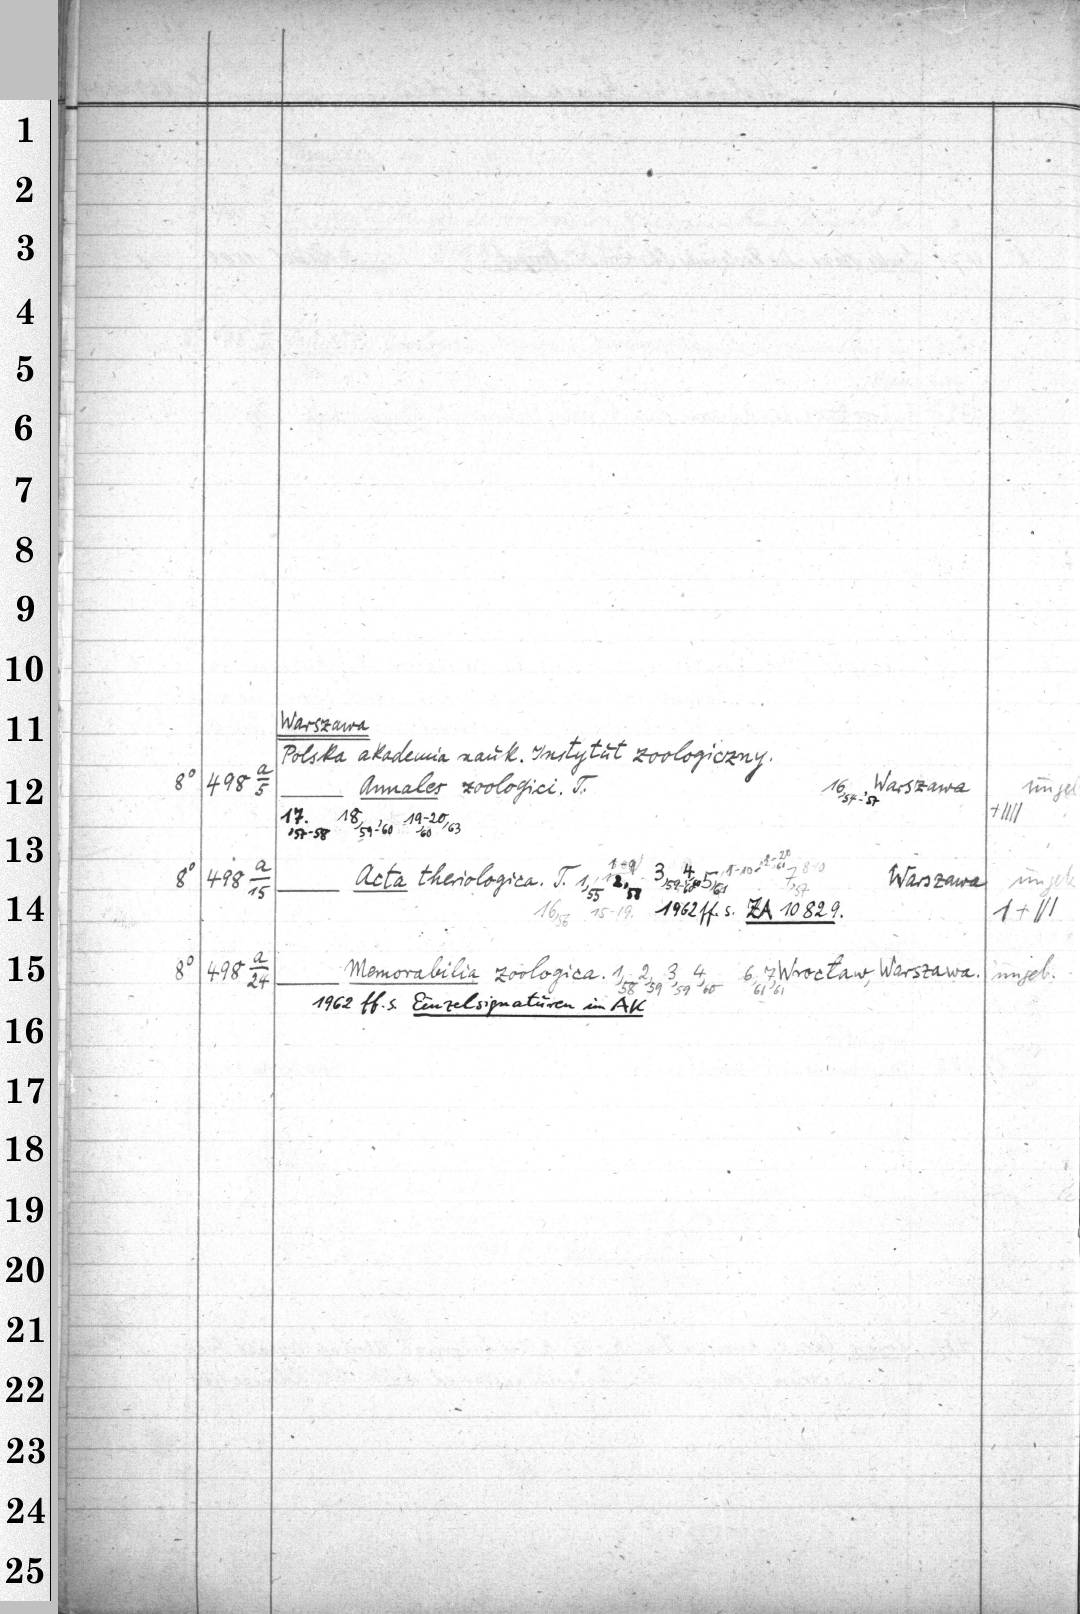 1
2
3
4
5
6
7
8
9
10
11
Warszawa
Polska akademia nauk. Instytut zoologiczny.
12
8° 498 a/5 ____ Annales zoologici. T. 16,54-57 Warszawa ungeb
17.,57-58 18,59-60 19-20,60/63 +IIII
13
8° 498 a/15 ____ Acta theriologica. T. 1,55 2,58 3,59-60 4 5,61 Warszawa ungeb
14
16,56 15-19. 1962 ff. s. ZA 10829. 1+III
15
8° 498 a/24 ____ Memorabilia zoologica. 1,58 2,59 3,59 4,60 6,61 7,61 Wrocław, Warszawa. ungeb.
1962 ff. s. Einzelsignaturen im AK
16
17
18
19
20
21
22
23
24
25